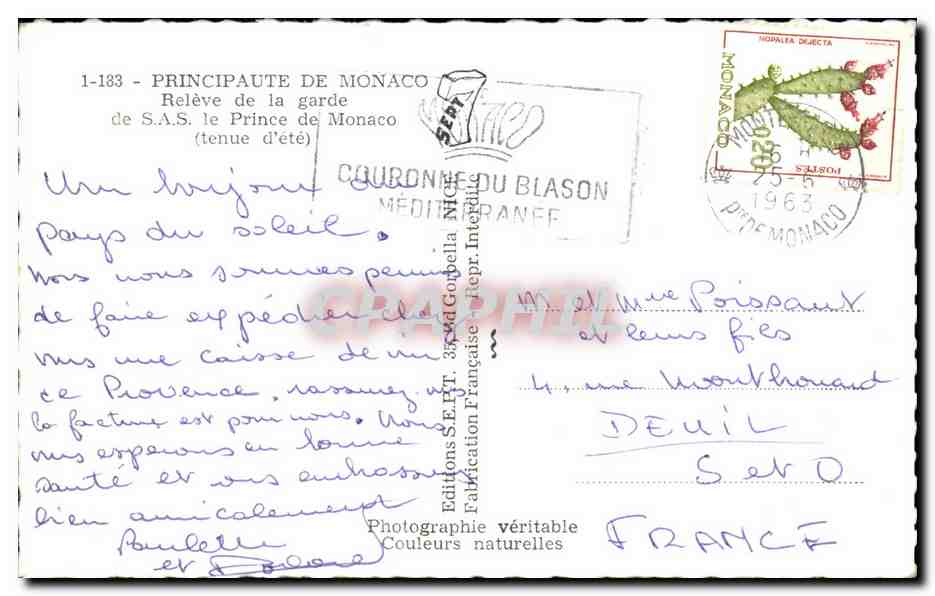 1-183 - PRINCIPAUTE DE MONACO
Relève de la garde
de S.A.S. le Prince de Monaco
(tenue d'été)
Un bonjour du
pays du soleil.
Nous nous sommes permis
de faire expédier chez
vous une caisse de vin
de Provence, rassurez-vous
la facture est pour nous. Nous
vous esperons en bonne
santé et vous embrassons
bien amicalement
Paulette
et
Editions S.E.P.T. 35, Bd Gorbella NICE
Fabrication Française - Repr. Interdite
Photographie véritable
Couleurs naturelles
SEPT
MONACO
COURONNE DU BLASON
MÉDITERRANÉE
NOPALEA DEJECTA
MONACO
0,20
POSTES
25-5
1963
PTE DE MONACO
CPAPHIL
M. et Mme Poissant
et leurs fils
4, rue
DEUIL
S et O
FRANCE